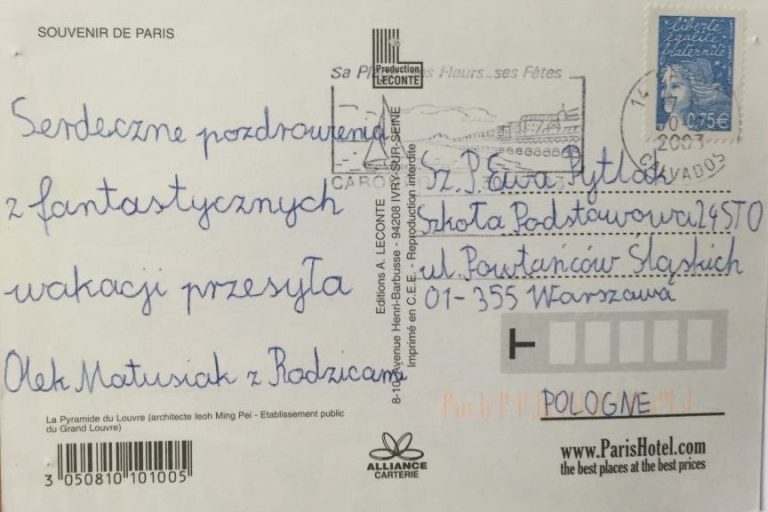 SOUVENIR DE PARIS
Production
LECONTE
Sa Fleurs..ses Fêtes
liberté
égalité
fraternité
0,75€
14
2003
CALVADOS
Serdeczne pozdrowienia
z fantastycznych
wakacji przesyła
Olek Matusiak z Rodzicami
Sz. P. Ewa Pytlak
Szkoła Podstawowa 24 STO
ul. Powstańców Śląskich
01-355 Warszawa
POLOGNE
Editions A. LECONTE
8-10 Avenue Henri-Barbusse - 94208 IVRY-SUR-SEINE
Imprimé en C.E.E. - Reproduction interdite
La Pyramide du Louvre (architecte Ieoh Ming Pei - Etablissement public
du Grand Louvre)
3 050810 101005
ALLIANCE
CARTERIE
www.ParisHotel.com
the best places at the best prices